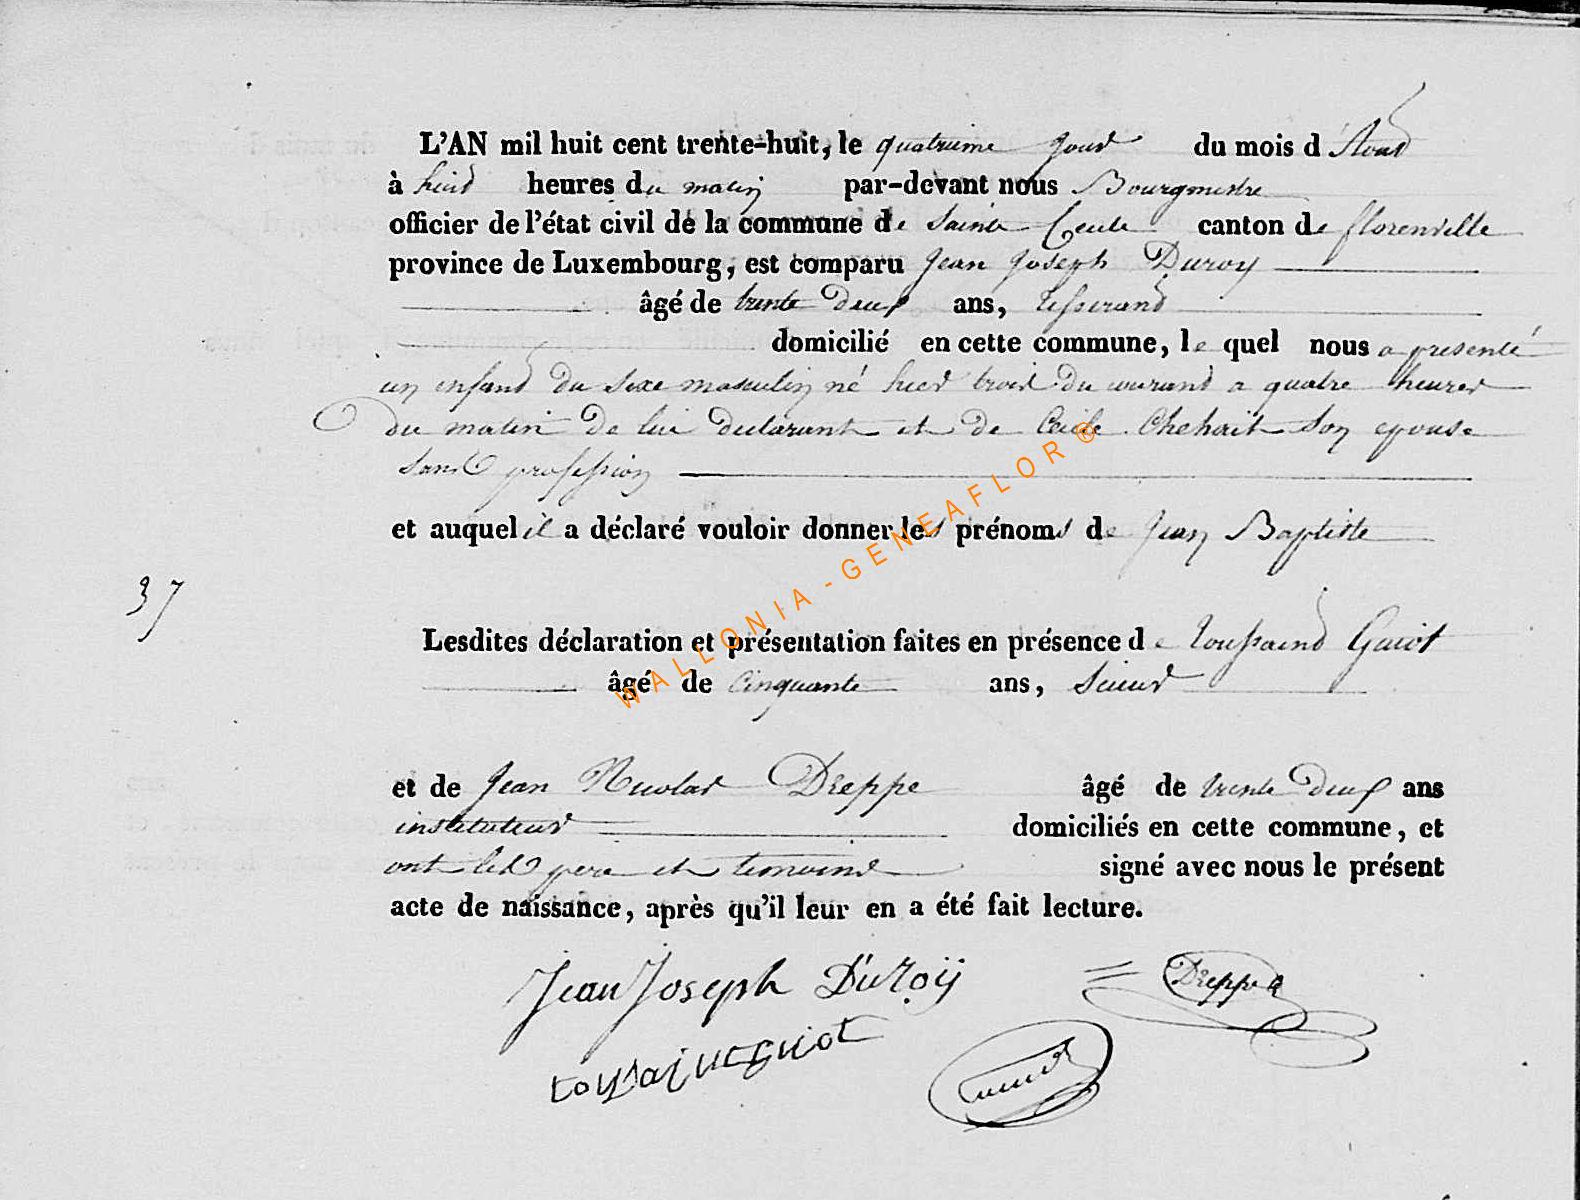 L'AN mil huit cent trente-huit, le quatrieme jour du mois d'Aout
à huit heures du matin par-devant nous Bourgmestre
officier de l'état civil de la commune de Sainte Cecile canton de florenville
province de Luxembourg, est comparu Jean Joseph Duroy
âgé de trente deux ans, tisserand
domicilié en cette commune, le quel nous a presenté
un enfant du sexe masculin né hier trois du courant a quatre heures
du matin de lui declarant et de Cecile Chehait son epouse
sans profession
et auquel il a déclaré vouloir donner les prénoms de Jean Baptiste
37
Lesdites déclaration et présentation faites en présence de toussaint Guiot
âgé de cinquante ans, Scieur
et de Jean Nicolas Dreppe âgé de trente deux ans
instituteur domiciliés en cette commune, et
ont les pere et temoins signé avec nous le présent
acte de naissance, après qu'il leur en a été fait lecture.
Jean Joseph Duroÿ Dreppe
toussaint guiot
WALLONIA - GENEAFLOR ®